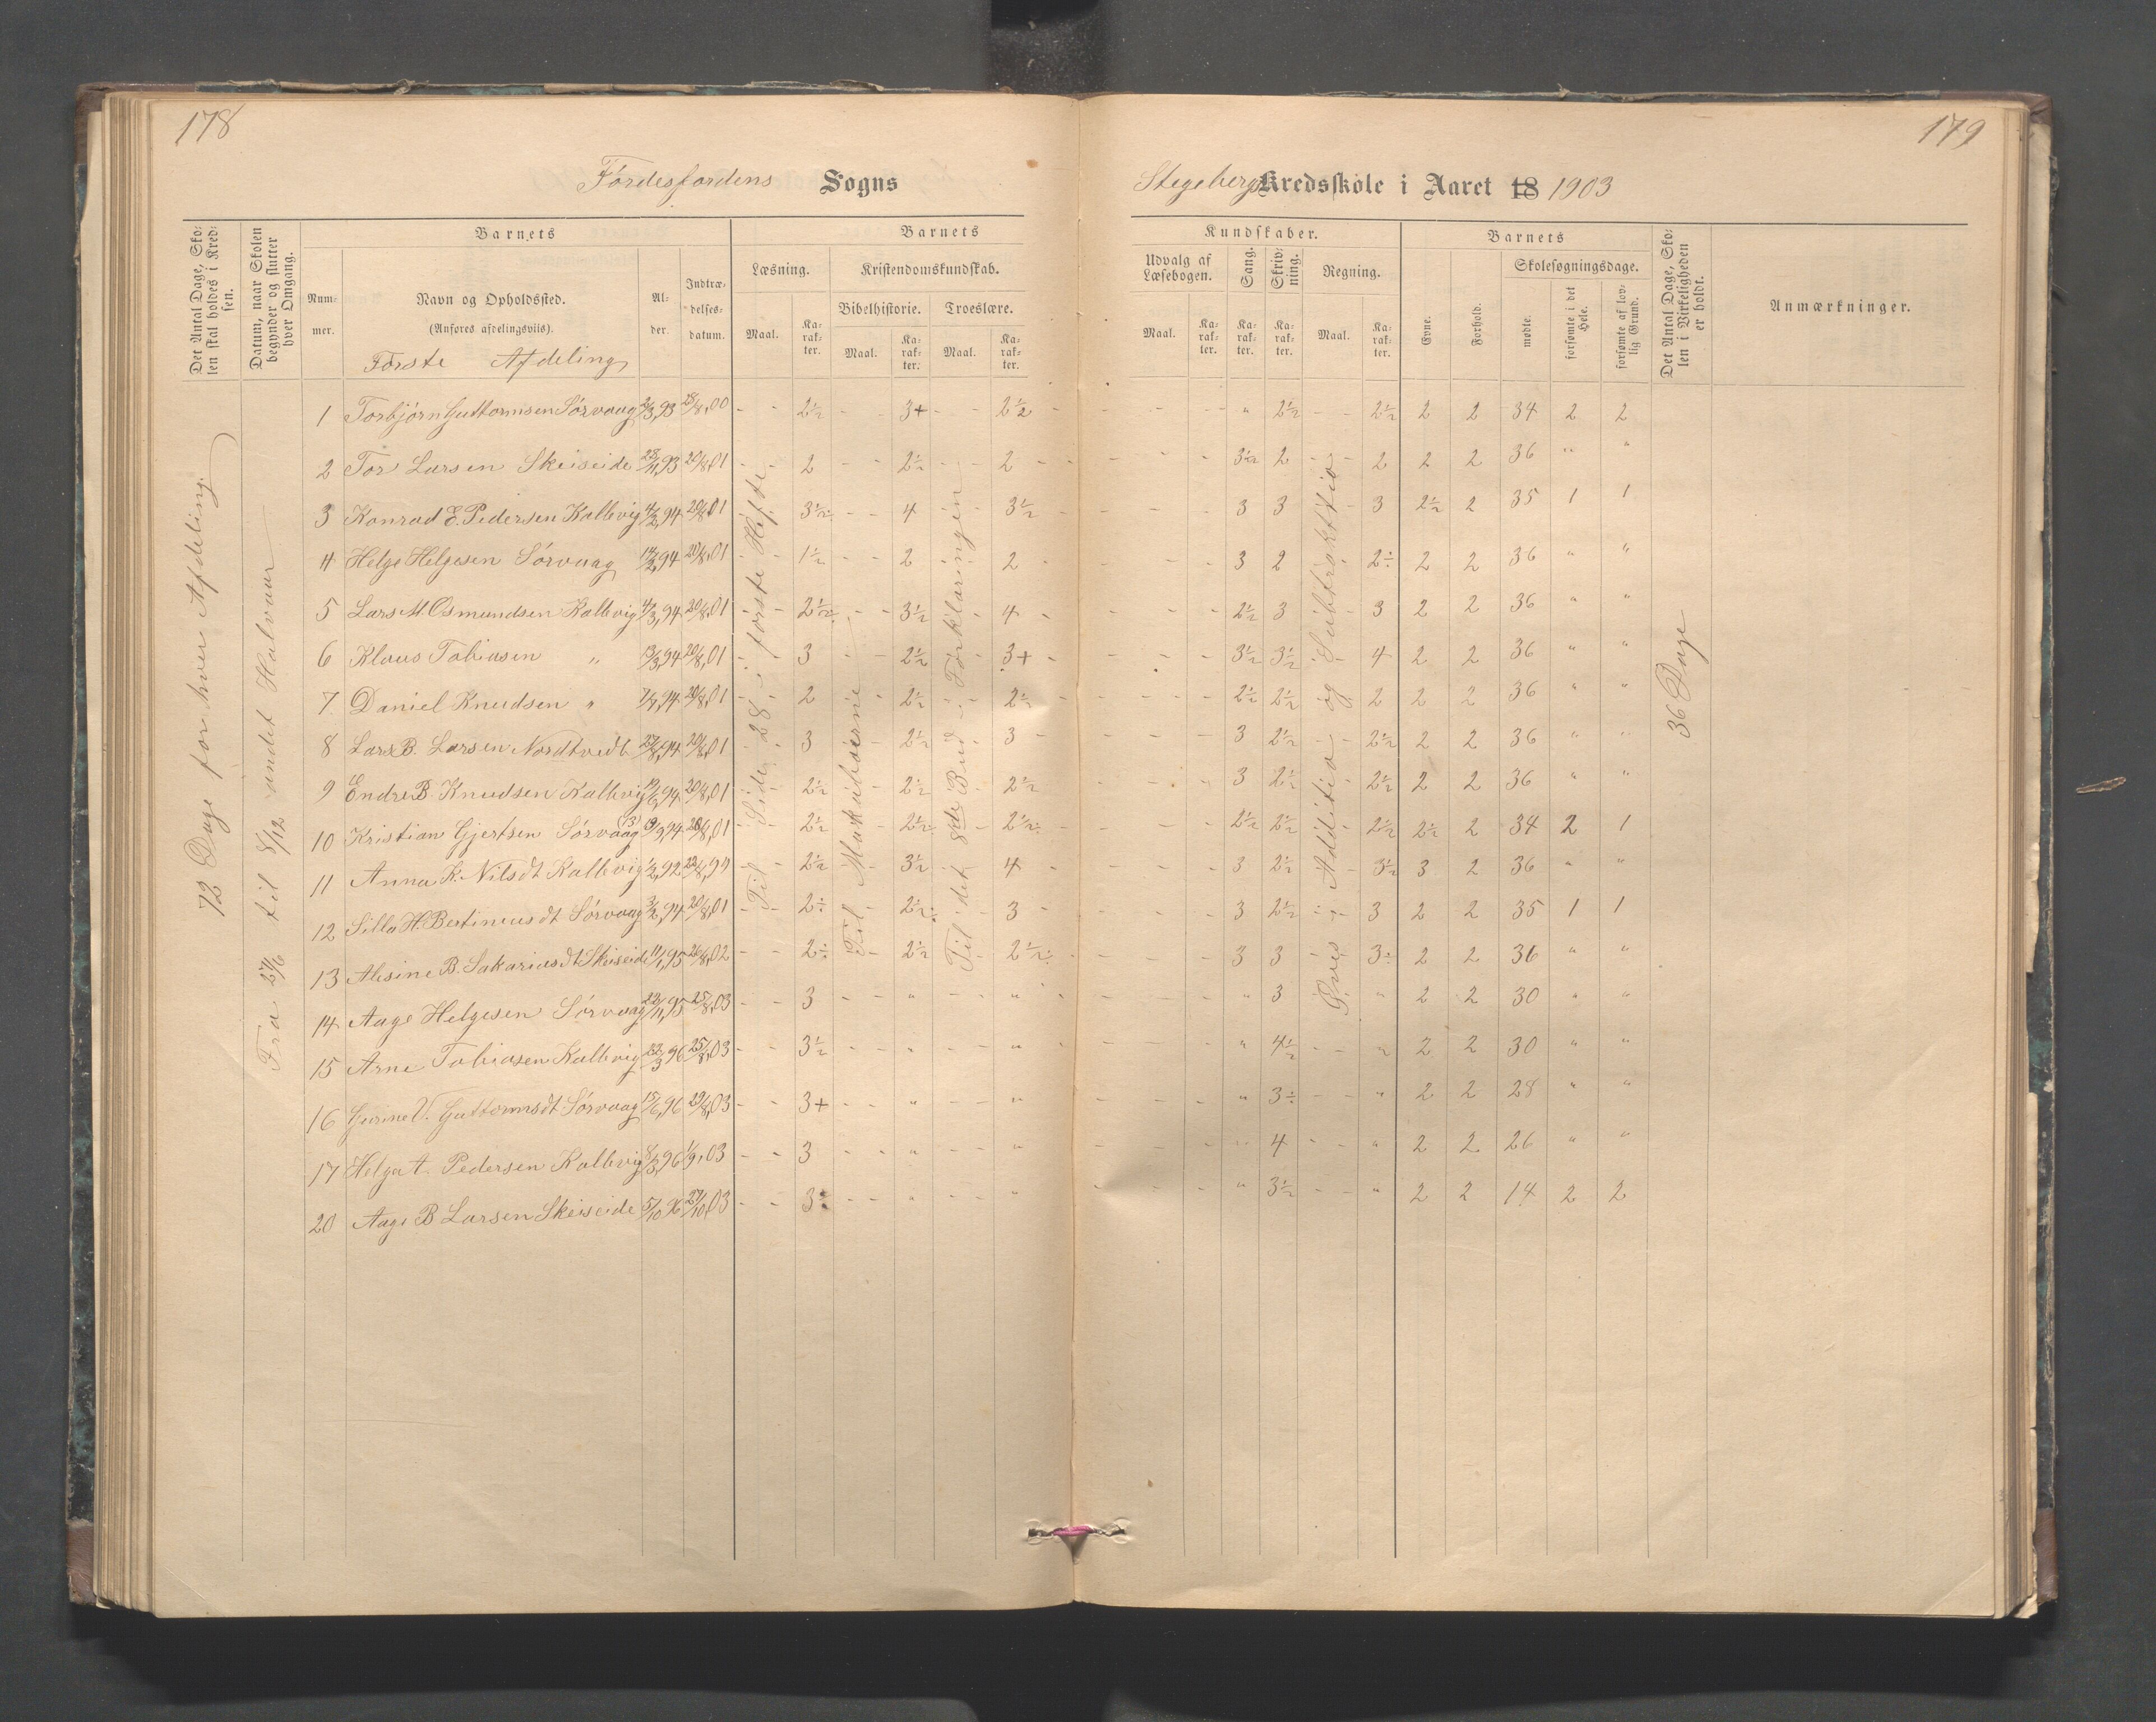 178
179
Førdesfjordens Sogns
Stegebergs Kredsskole i Aaret 18 1903
Det Antal Dage, Skolen skal holdes i Kredsen.
Datum, naar Skolen begynder og slutter hver Omgang.
Barnets
Barnets
Kundskaber.
Barnets
Nummer.
Navn og Opholdssted.
(Anføres afdelingsviis).
Alder.
Indtrædelsesdatum.
Læsning.
Kristendomskundskab.
Bibelhistorie.
Troeslære.
Maal.
Karakter.
Maal.
Karakter.
Maal.
Karakter.
Udvalg af Læsebogen.
Sang.
Skrivning.
Regning.
Maal.
Karakter.
Karakter.
Karakter.
Maal.
Karakter.
Evne.
Forhold.
Skolesøgningsdage.
mødte.
forsømte i det Hele.
forsømte af lovlig Grund.
Det Antal Dage, Skolen i Virkeligheden er holdt.
Anmærkninger.
Første Afdeling
72 Dage for hver Afdeling.
Fra 27/6 til 8/12 andet Halvaar
Til Side 28 i første Hefte
Til Makabæerne
Til det 8de Bud i Forklaringen
Øves i Addition og Subtraktion
36 Dage
1 Torbjørn Guttormsen Sørvaag 2/3,93 28/8,00 - - 2½ - - 3+ - - 2½ - - - - " 2½ - - 2½ 2 2 34 2 2
2 Tor Larsen Skeiseide 28/11,93 20/8,01 - - 2 - - 2½ - - 2 - - - - 3½ 2 - - 2 2 2 36 " "
3 Konrad E. Pedersen Kallevig 4/2,94 20/8,01 3½ - - 4 - - 3½ - - - 3 3 - 3 2½ 2 35 1 1
4 Helge Helgesen Sørvaag 14/2,94 20/8,01 - - 1½ - - 2 - - 2 - - - 3 2 2÷ 2 2 36 " "
5 Lars M. Osmundsen Kallevig 4/3,94 20/8,01 - - 2½ - - 3½ - 4 - - - 2½ 3 - 3 2 2 36 " "
6 Klaus Tobiasen " 13/3,94 20/8,01 - - 3 - - 2½ - 3+ - - - 3½ 3½ 4 2 2 36 " "
7 Daniel Knudsen " 7/7,94 20/8,01 - - 2 - 2½ - 2½ - - - 2½ 2½ 2 2 2 36 " "
8 Lars B. Larsen Nordtvedt 27/8,94 20/8,01 - 3 - 2½ - 3 - - - 3 2½ - 2½ 2 2 36 " "
9 Endre B. Knudsen Kallevig 19/6,94 20/8,01 2½ - 2½ - 2½ - - - 3 2½ - 2½ 2 2 36 " "
10 Kristian Gjertsen Sørvaag (13) 9/3,94 20/8,01 2½ - 2½ - 2½ - - - 2½ 2½ - 2½ 2½ 2 34 2 1
11 Anna K. Nilsdt Kallevig 1/2,92 22/8,99 - 2½ - 3½ - 4 - - - 3 2½ - 3½ 3 2 36 " "
12 Silla H. Bertineusdt Sørvaag 3/2,94 20/8,01 - - 2÷ - 2½ - 3 - - - 3 2½ - 3 2 2 35 1 1
13 Alesine B. Sakariasdt Skeiseide 11/1,95 26/8,02 - - 2÷ - 2½ - 2½ - - - 3 3 - 3÷ 2 2 36 " "
14 Aage Helgesen Sørvaag 22/11,95 25/8,03 - - 3 - - " - - " - - - " 3 " 2 2 30 " "
15 Arne Tobiasen Kallevig 23/3,96 25/8,03 - - 3½ - - " - - " - - - " 4½ - - " 2 2 30 " "
16 Gurine V. Guttormsdt Sørvaag 15/6,96 29/8,03 - - 3+ - - " - - " - - - " 3÷ - - " 2 2 28 " "
17 Helga A. Pedersen Kallevig 8/3,96 1/9,03 - - 3 - - " - - " - - - " 4 - - " 2 2 26 " "
20 Aage B Larsen Skeiseide 5/10 96 27/10,03 - - 3÷ - - " - - " - - - - " 3½ - - " 2 2 14 2 2